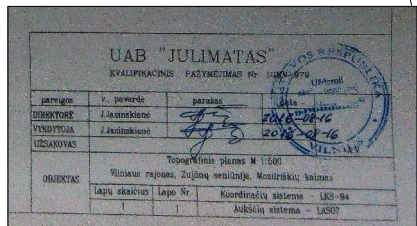 UAB "JULIMATAS"
KVALIFIKACINIS PAŽYMĖJIMAS Nr 1GKV-979
pareigos v., pavardė parašas data
DIREKTORĖ J.Jasinskienė 2016-08-16
VYKDYTOJA J.Jasinskienė 2016-08-16
UŽSAKOVAS
OBJEKTAS
Topografinis planas M 1:500
Vilniaus rajonas, Zujūnų seniūnija, Mozūriškių kaimas
Lapų skaičius Lapo Nr. Koordinačių sistema - LKS-94
1 1 Aukščių sistema - LAS07
RESPUBLIKA
VILNIUS